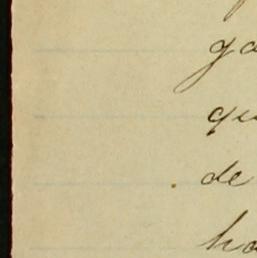 ga
qu
de
ho